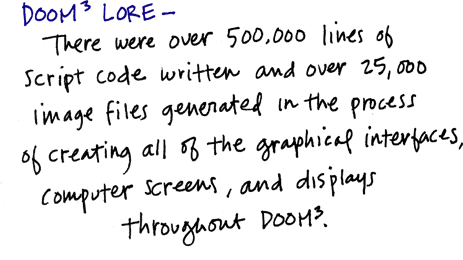 DOOM³ LORE –
There were over 500,000 lines of
script code written and over 25,000
image files generated in the process
of creating all of the graphical interfaces,
computer screens, and displays
throughout DOOM³.